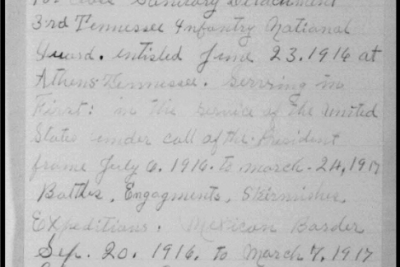 Sanitary Detachment
3rd Tennessee Infantry National
Guard. entisled June 23.1916 at
Athens Tennessee. serving in
First: in the service of the United
States under call of the President
frome July 6. 1916. to march. 24, 1917
Battles, Engagments, Skirmishes,
Expeditions. Mexican Boarder
Sep. 20. 1916, to March 7, 1917